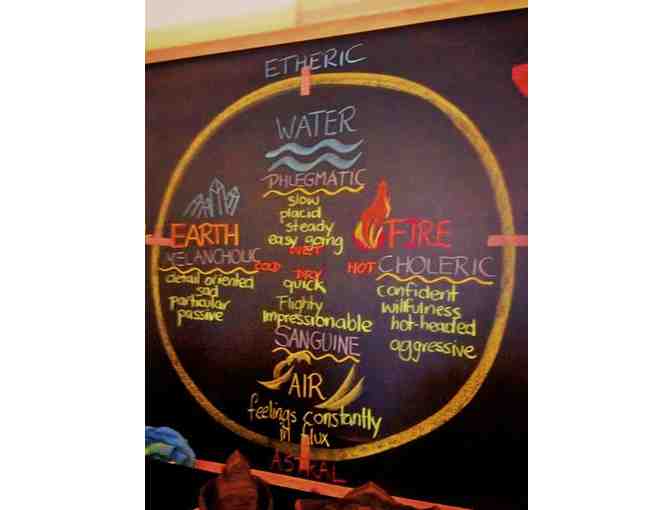 ETHERIC
WATER
PHLEGMATIC
slow
placid
steady
easy going
EARTH
MELANCHOLIC
detail oriented
sad
particular
passive
WET
COLD
DRY
HOT
FIRE
CHOLERIC
confident
willfulness
hot-headed
aggressive
quick
Flighty
impressionable
SANGUINE
AIR
feelings constantly
in flux
ASTRAL